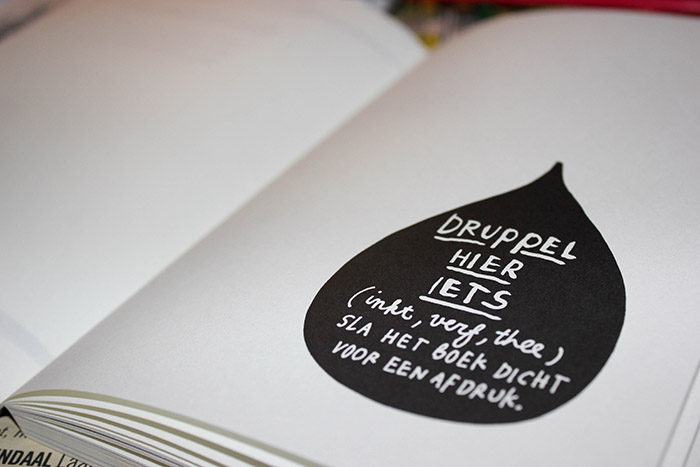 DRUPPEL
HIER
IETS
(inkt, verf, thee)
SLA HET BOEK DICHT
VOOR EEN AFDRUK.
NDAAL